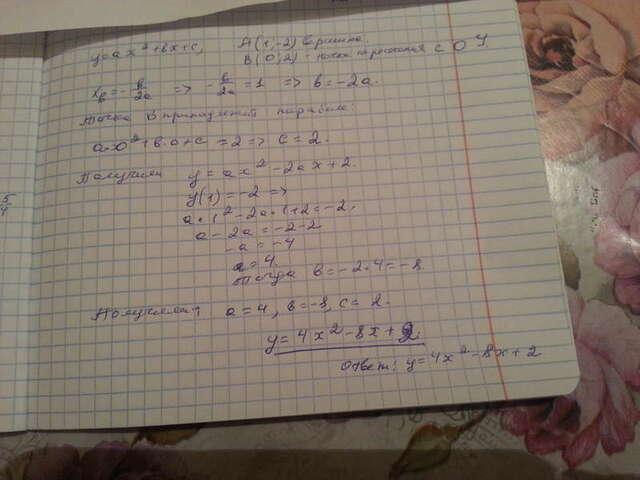 y=ax²+bx+c, A(1,-2) вершина.
B(0;2) - точка пересечения с ОУ
xв=-b/2a => -b/2a=1 => b=-2a.
Точка В принадлежит параболе:
a·0²+b·0+c=2 => c=2.
Получили y=ax²-2ax+2.
y(1)=-2 =>
a·1²-2a·1+2=-2,
a-2a=-2-2
-a=-4
a=4.
Тогда b=-2·4=-8
Получили: a=4, b=-8, c=2.
y=4x²-8x+2.
Ответ: y=4x²-8x+2
5/4